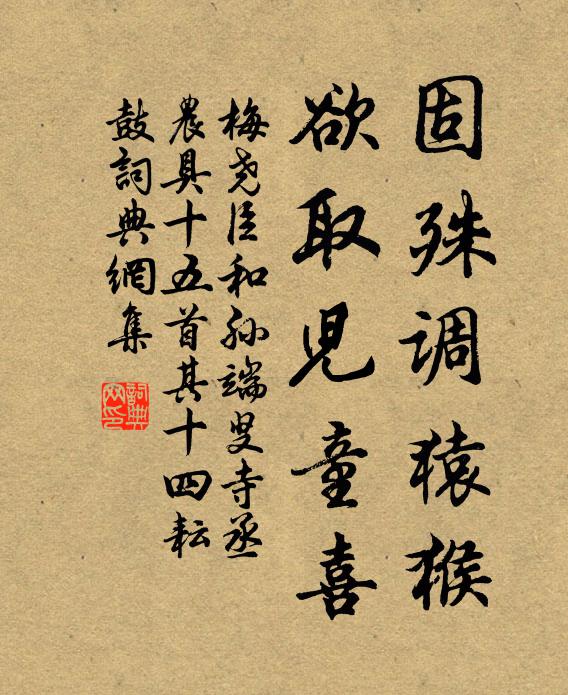 固殊调猿猴
欲取児童喜
梅尧臣和孙端叟寺丞
農具十五首其十四耘
鼓詞典網集
詞典网印